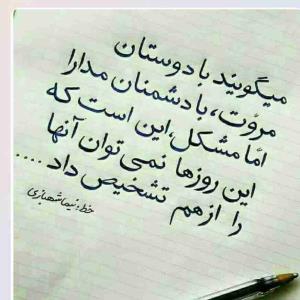 میگویند با دوستان
مروّت، با دشمنان مدارا
امّا مشکل، این است که
این روزها نمی توان آنها
را از هم تشخیص داد ....
خط: نیما شهبازی